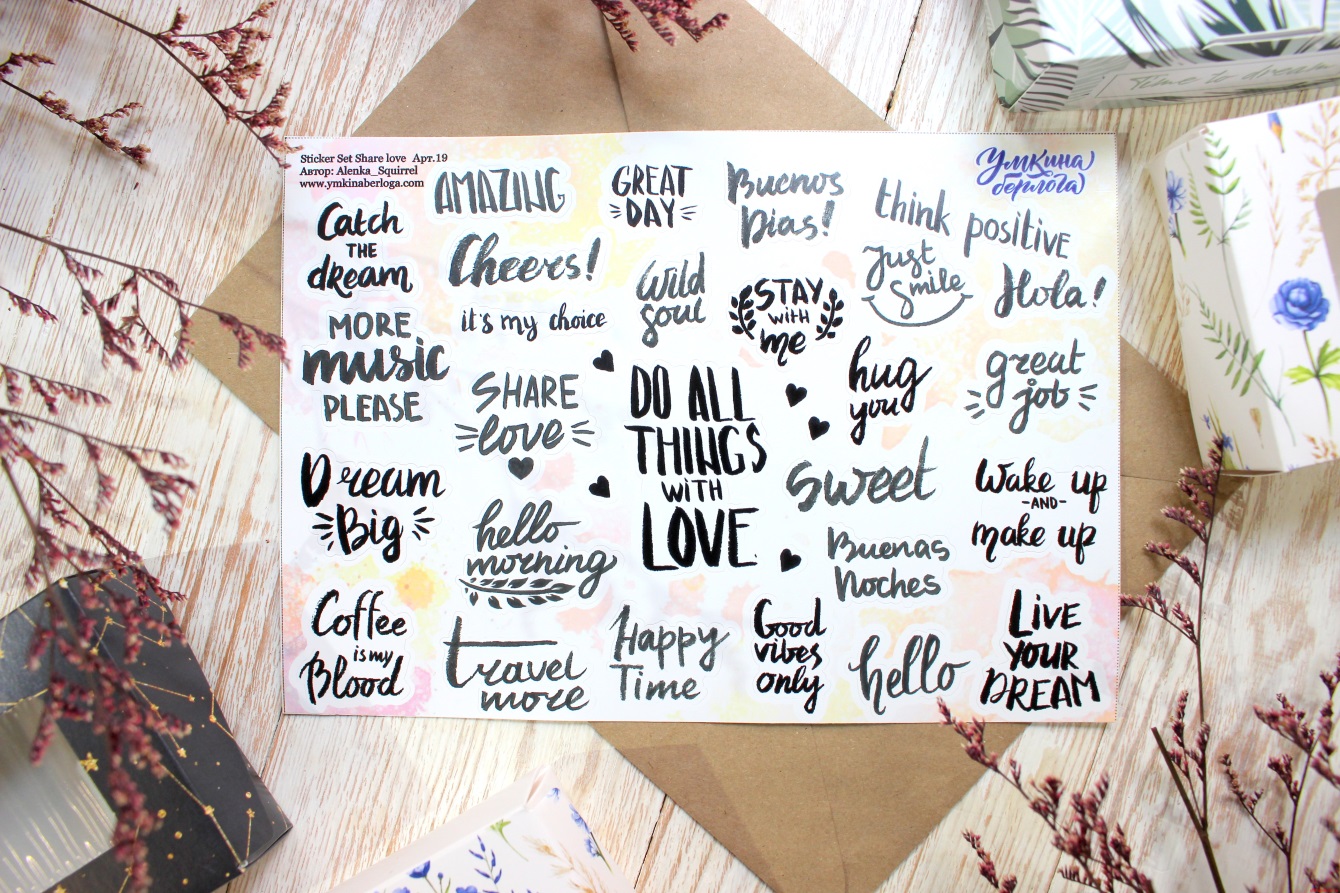 Sticker Set Share love Арт.19
Автор: Alenka_Squirrel
www.ymkinaberloga.com
Умкина
берлога
Catch
THE
dream
AMAZING
GREAT
DAY
Buenos
Dias!
think positive
Cheers!
Wild
soul
STAY
with
me
Just
Smile
Hola!
MORE
music
PLEASE
it's my choice
SHARE
love
DO ALL
THINGS
WITH
LOVE
hug
you
great
job
Dream
Big
hello
morning
sweet
Wake up
-AND-
make up
Buenas
Noches
Coffee
is my
Blood
travel
more
Happy
Time
Good
vibes
only
hello
LIVE
YOUR
DREAM